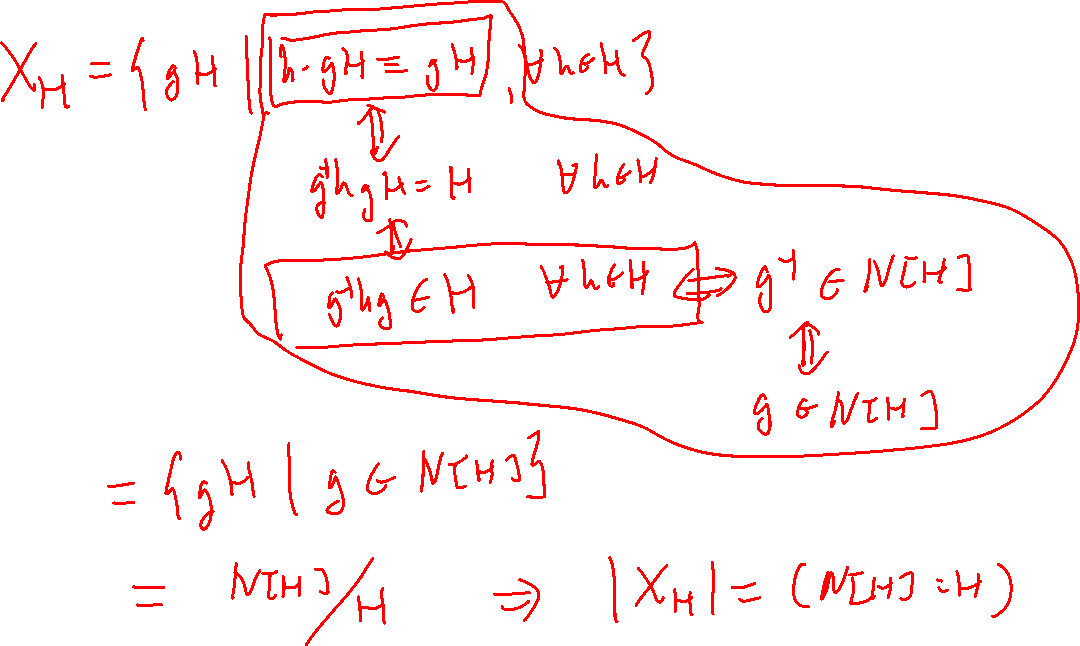 X_H = { gH | h·gH ≡ gH, ∀h∈H }
⇕
g⁻¹hgH = H ∀h∈H
⇕
g⁻¹hg ∈ H ∀h∈H ⇔ g⁻¹ ∈ N[H]
⇕
g ∈ N[H]
= { gH | g ∈ N[H] }
= N[H]/H ⇒ |X_H| = (N[H] : H)